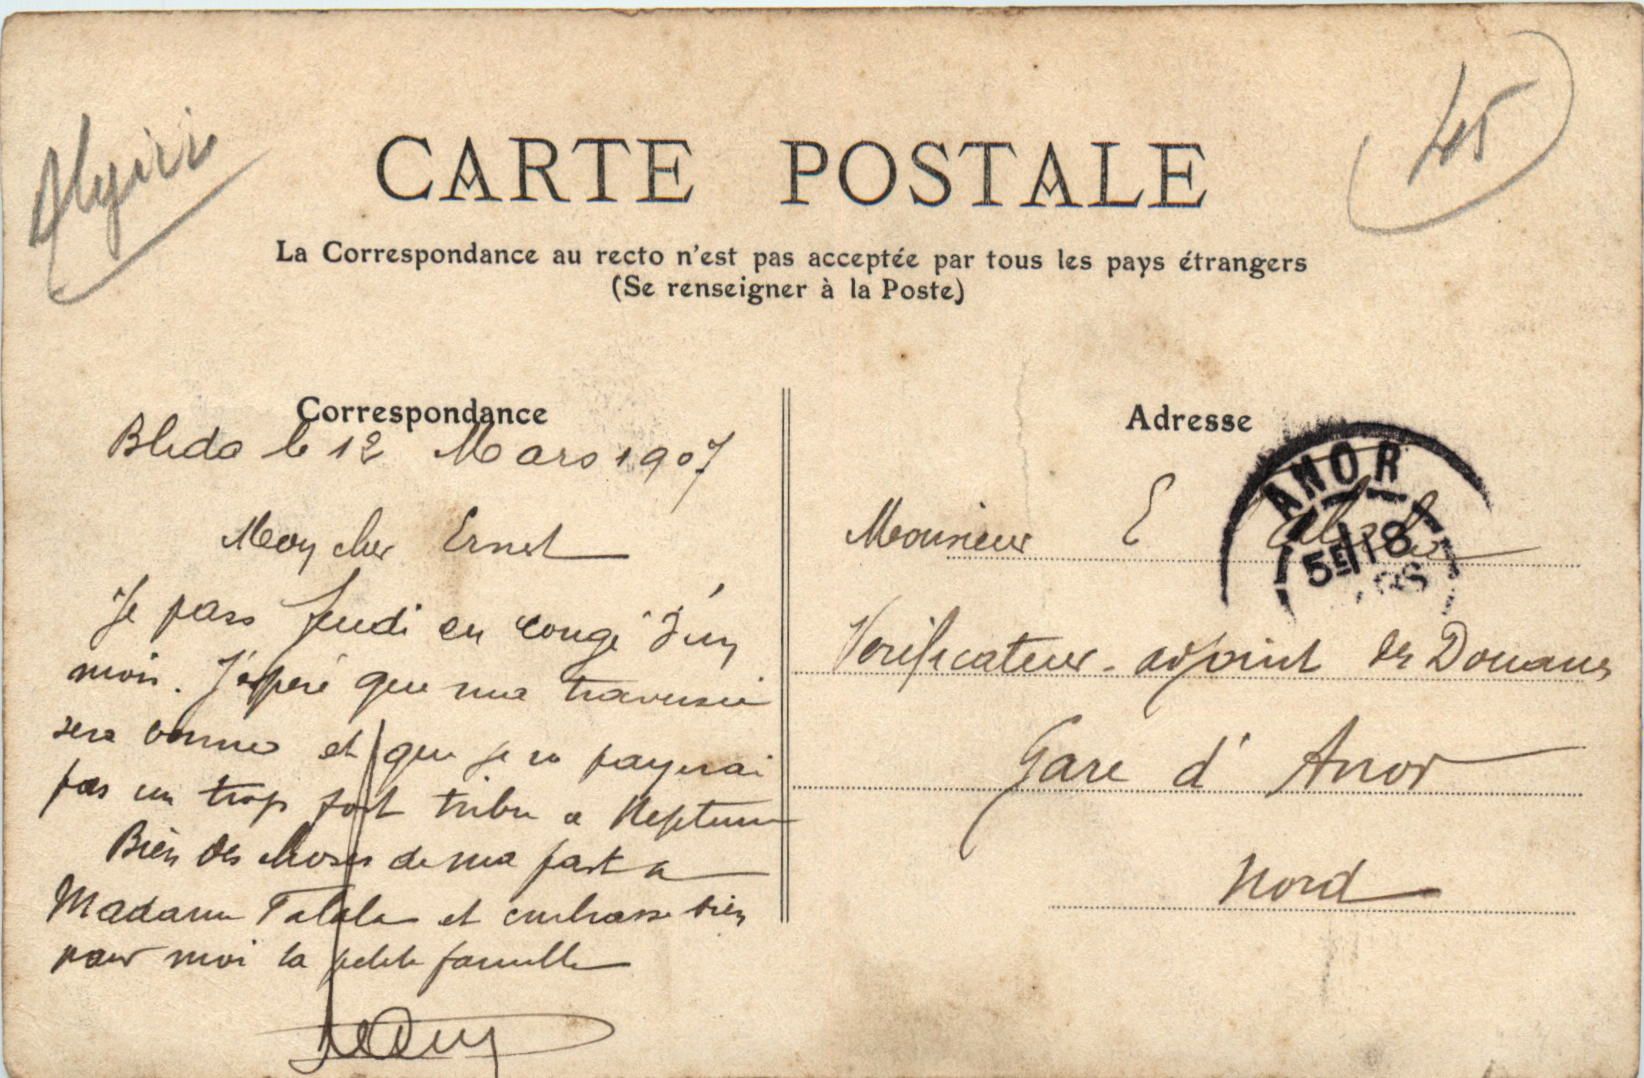 Algérie
45
CARTE POSTALE
La Correspondance au recto n'est pas acceptée par tous les pays étrangers
(Se renseigner à la Poste)
Correspondance
Blida le 12 Mars 1907
Mon cher Ernest
Je pars Jeudi en congé d'un
mois. J'espère que ma traversée
sera bonne et que je ne payerai
pas un trop fort tribu a Neptune
Bien des choses de ma part a
Madame et embrasse bien
pour moi la petite famille
Adresse
ANOR
5E 18
Monsieur E
Verificateur-adjoint des Douanes
Gare d'Anor
Nord